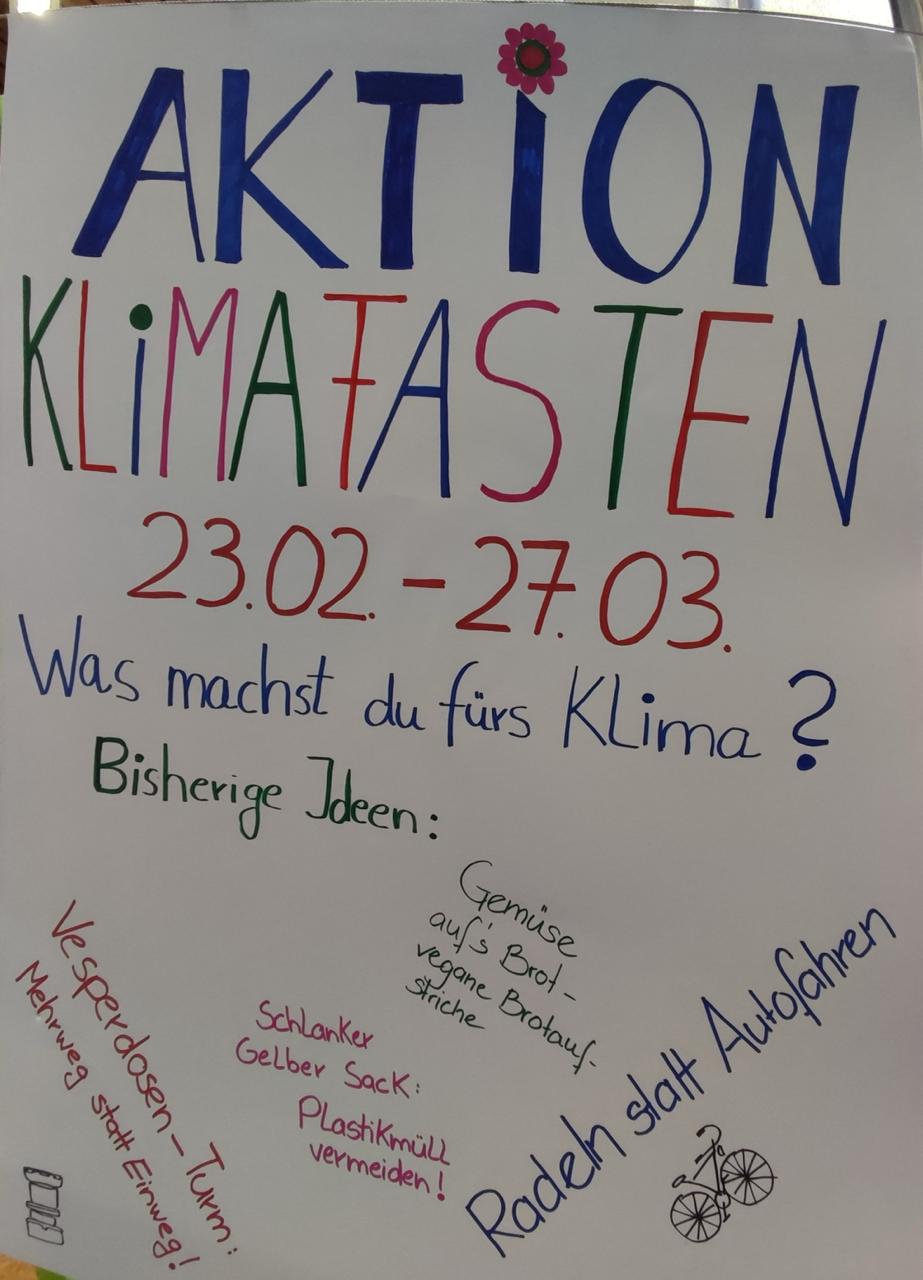 AKTiON
KLiMAFASTEN
23.02. - 27.03.
Was machst du fürs Klima?
Bisherige Ideen:
Gemüse
auf's Brot -
vegane Brotauf-
striche
Vesperdosen-Turm:
Mehrweg statt Einweg!
Schlanker
Gelber Sack:
Plastikmüll
vermeiden!
Radeln statt Autofahren